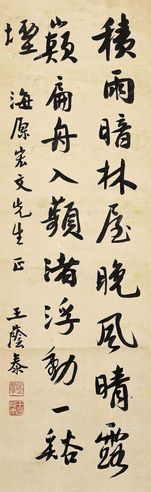 積雨暗林屋晚風晴露
巔扁舟入蘋渚浮動一谿
煙 海原宏文先生正 王蔭泰